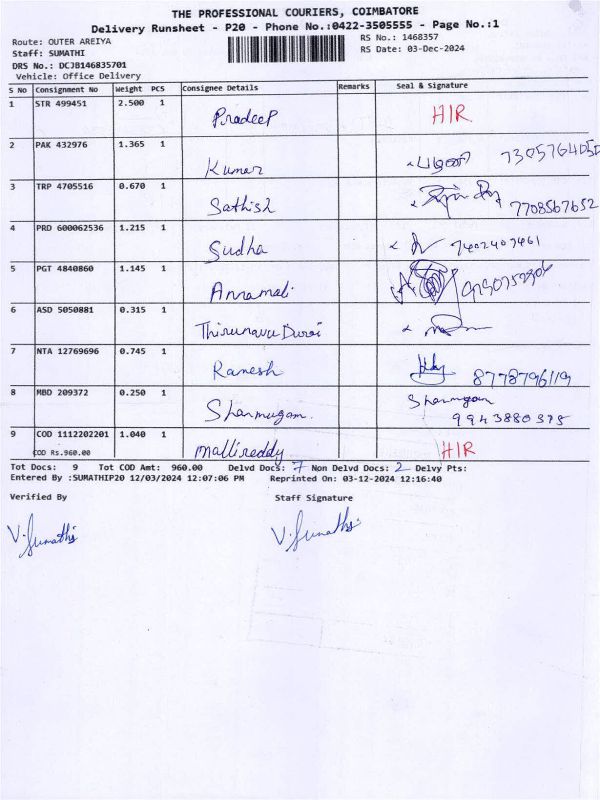 THE PROFESSIONAL COURIERS, COIMBATORE
Delivery Runsheet - P20 - Phone No.:0422-3505555 - Page No.:1
Route: OUTER AREIYA RS No.: 1468357
Staff: SUMATHI RS Date: 03-Dec-2024
DRS No.: DCJB146835701
Vehicle: Office Delivery
S No Consignment No Weight PCS Consignee Details Remarks Seal & Signature
1 STR 499451 2.500 1 Pradeep HIR.
2 PAK 432976 1.365 1 Kumar
3 TRP 4705516 0.670 1 Sathish 7708567652
4 PRD 600062536 1.215 1 Sudha 7402407461
5 PGT 4840860 1.145 1 Annamali
6 ASD 5050881 0.315 1 Thirunavu Durai
7 NTA 12769696 0.745 1 Ramesh 8778796119
8 MBD 209372 0.250 1 Shanmugam. Shanmugam
9943880375
9 COD 1112202201 1.040 1 Mallireddy HIR
COD Rs.960.00
Tot Docs: 9 Tot COD Amt: 960.00 Delvd Docs: 7 Non Delvd Docs: 2 Delvy Pts:
Entered By :SUMATHIP20 12/03/2024 12:07:06 PM Reprinted On: 03-12-2024 12:16:40
Verified By Staff Signature
V. Sumathi V. Sumathi